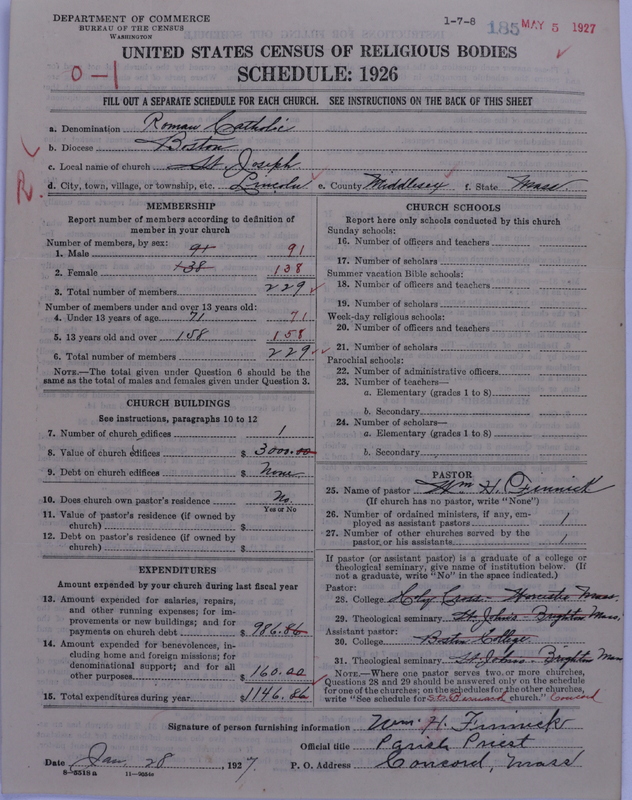 DEPARTMENT OF COMMERCE
BUREAU OF THE CENSUS
WASHINGTON
1-7-8
185 MAY 5 1927
UNITED STATES CENSUS OF RELIGIOUS BODIES
0-1
SCHEDULE: 1926
FILL OUT A SEPARATE SCHEDULE FOR EACH CHURCH. SEE INSTRUCTIONS ON THE BACK OF THIS SHEET
a. Denomination Roman Catholic
b. Diocese Boston
c. Local name of church St. Joseph
R
d. City, town, village, or township, etc. Lincoln e. County Middlesex f. State Mass
MEMBERSHIP
Report number of members according to definition of
member in your church
Number of members, by sex:
1. Male 91 91
2. Female 138 138
3. Total number of members 229
Number of members under and over 13 years old:
4. Under 13 years of age 71 71
5. 13 years old and over 158 158
6. Total number of members 229
NOTE.—The total given under Question 6 should be the
same as the total of males and females given under Question 3.
CHURCH BUILDINGS
See instructions, paragraphs 10 to 12
7. Number of church edifices 1
8. Value of church edifices $ 3000.00
9. Debt on church edifices $ None
10. Does church own pastor's residence No.
Yes or No
11. Value of pastor's residence (if owned by
church) $
12. Debt on pastor's residence (if owned by
church) $
EXPENDITURES
Amount expended by your church during last fiscal year
13. Amount expended for salaries, repairs,
and other running expenses; for im-
provements or new buildings; and for
payments on church debt $ 986.86
14. Amount expended for benevolences, in-
cluding home and foreign missions; for
denominational support; and for all
other purposes 160.00
15. Total expenditures during year $ 1146.86
CHURCH SCHOOLS
Report here only schools conducted by this church
Sunday schools:
16. Number of officers and teachers
17. Number of scholars
Summer vacation Bible schools:
18. Number of officers and teachers
19. Number of scholars
Week-day religious schools:
20. Number of officers and teachers
21. Number of scholars
Parochial schools:
22. Number of administrative officers
23. Number of teachers—
a. Elementary (grades 1 to 8)
b. Secondary
24. Number of scholars—
a. Elementary (grades 1 to 8)
b. Secondary
PASTOR
25. Name of pastor Wm. H. Finnick
(If church has no pastor, write "None")
26. Number of ordained ministers, if any, em-
ployed as assistant pastors 1
27. Number of other churches served by the
pastor, or his assistants 1
If pastor (or assistant pastor) is a graduate of a college or
theological seminary, give name of institution below. (If
not a graduate, write "No" in the space indicated.)
Pastor:
28. College Holy Cross - Worcester Mass.
29. Theological seminary St. John's - Brighton Mass.
Assistant pastor:
30. College Boston College
31. Theological seminary St. Johns - Brighton Mass
NOTE.—Where one pastor serves two or more churches,
Questions 28 and 29 should be answered only on the schedule
for one of the churches; on the schedules for the other churches,
write "See schedule for St. Bernard church." Concord
Signature of person furnishing information Wm. H. Finnick
Official title Parish Priest
Date Jan. 28, 1927 P. O. Address Concord, Mass
8-5518a 11-9554c